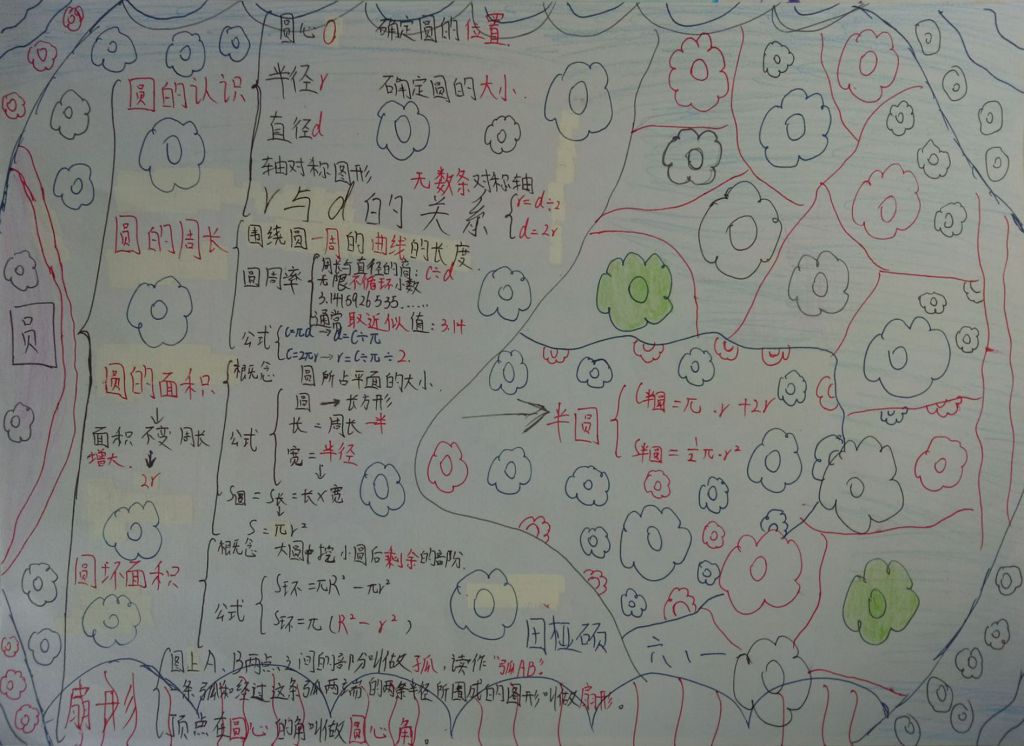 圆
圆的认识
圆心O 确定圆的位置.
半径r 确定圆的大小.
直径d
轴对称图形 无数条对称轴
r与d的关系
r=d÷2
d=2r
圆的周长
围绕圆一周的曲线的长度.
圆周率
周长与直径的商:C÷d
无限不循环小数
3.1415926535……
通常取近似值:3.14
公式
C=πd→d=C÷π
C=2πr→r=C÷π÷2.
圆的面积
↓
面积不变 周长
增大.↓
2r
概念 圆所占平面的大小.
公式
圆→长方形
长=周长一半
宽=半径
↓
S圆=S长=长×宽
↓
S=πr²
→半圆
C半圆=π.r+2r
S半圆=½π.r²
圆环面积
概念 大圆中挖小圆后剩余的部分.
公式
S环=πR²-πr²
S环=π(R²-r²)
六、一
扇形
圆上A、B两点之间的部分叫做弧,读作"弧AB".
一条弧和经过这条弧两端的两条半径所围成的图形叫做扇形。
顶点在圆心的角叫做圆心角。